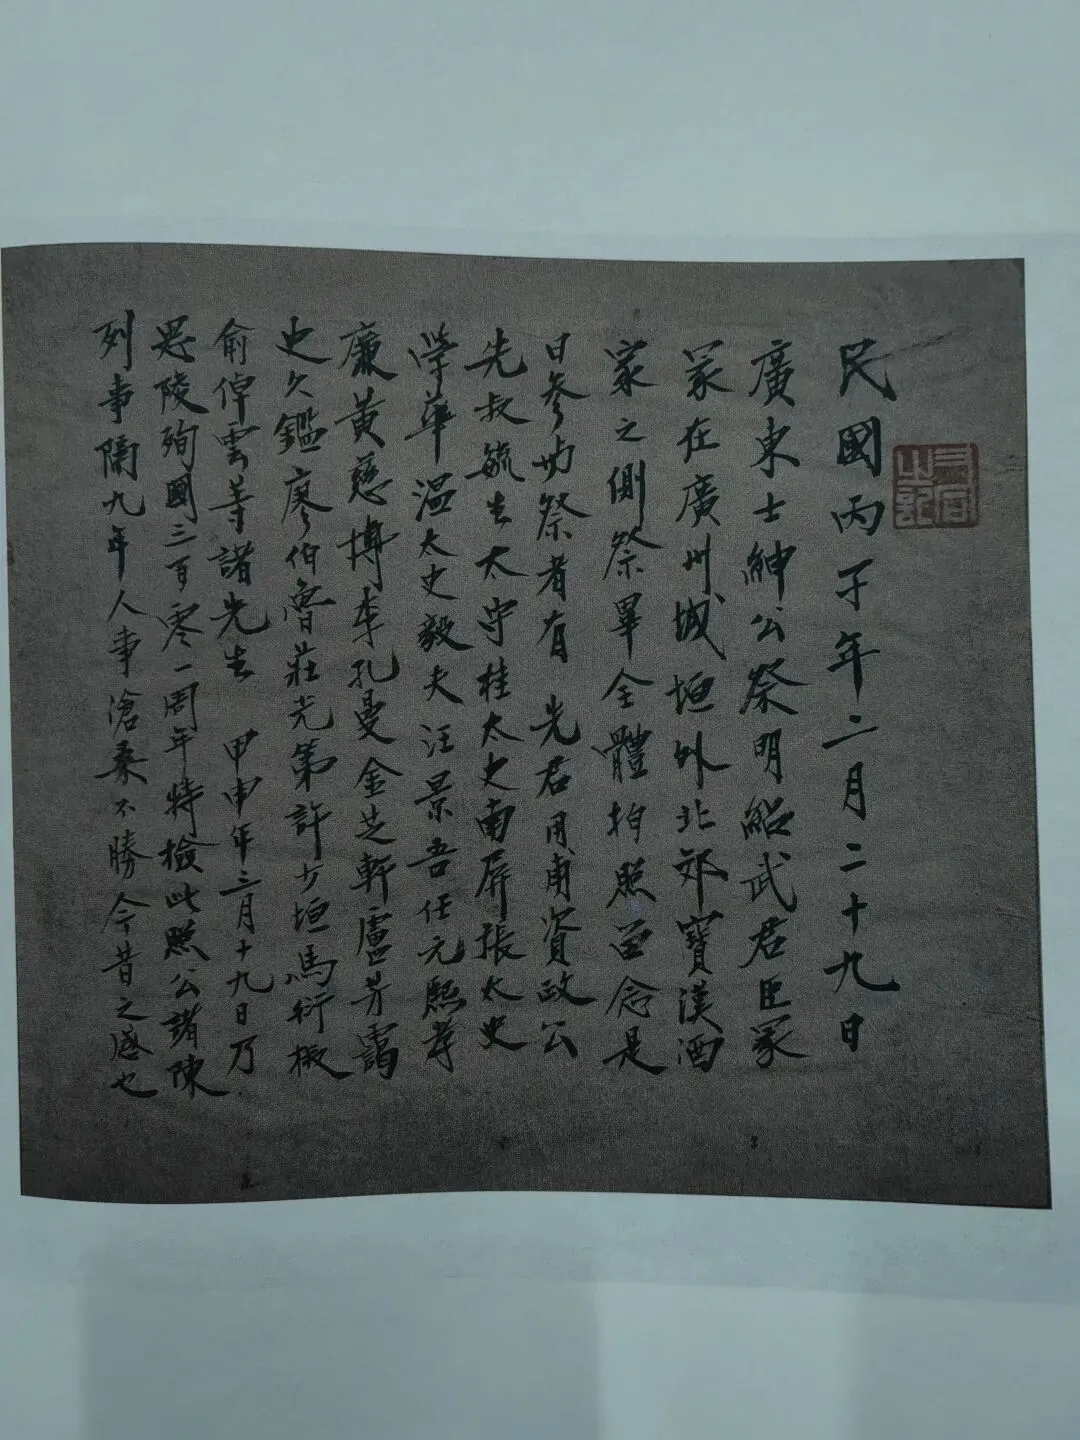 民國丙子年二月二十九日
廣東士紳公祭明紹武君臣冢
冢在廣州城垣外北郊寶漢酒
家之側祭畢全體拍照留念是
日參加祭者有 先君用甫資政公
先叔毓生太守桂太史南屏張太史
學華溫太史毅夫汪景吾任元熙孝
廉黃慈博李孔曼金芝軒盧芳靄
史久鑑廖伯魯莊光第許少垣馬衍椒
俞倬雲等諸先生 甲申年三月十九日乃
思陵殉國三百零一周年特撿此照公諸陳
列事隔九年人事滄桑不勝今昔之感也
之記